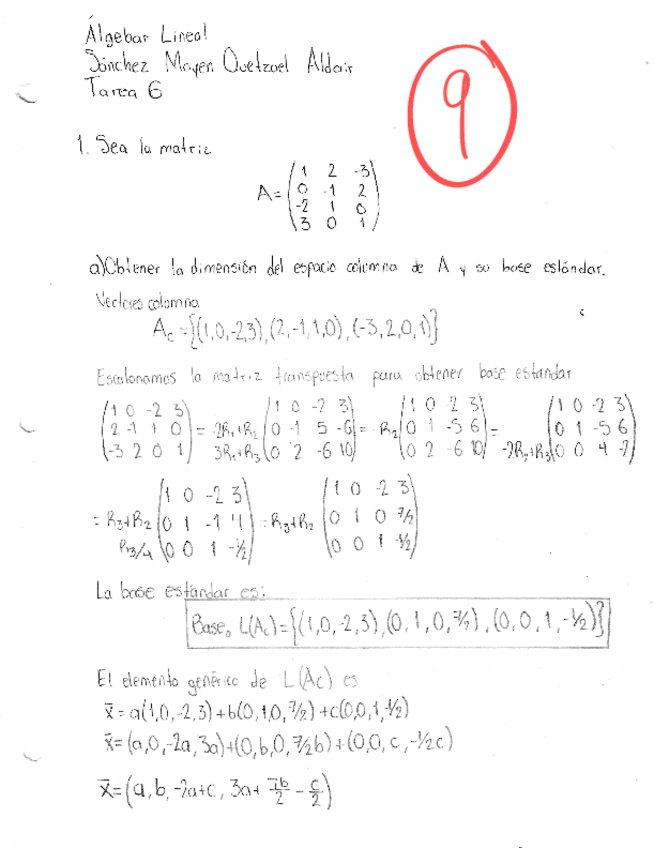 Álgebar Lineal
Sánchez Mayen Quetzael Aldair
Tarea 6
9
1. Sea la matriz
A = (1 2 -3
0 -1 2
-2 1 0
3 0 1)
a) Obtener la dimensión del espacio columna de A y su base estándar.
Vectores columna
A_c = {(1,0,-2,3),(2,-1,1,0),(-3,2,0,1)}
Escalonamos la matriz transpuesta para obtener base estandar
(1 0 -2 3
2 -1 1 0
-3 2 0 1)
= 2R₁+R₂
3R₁+R₃
(1 0 -2 3
0 -1 5 -6
0 2 -6 10)
= -R₂
(1 0 -2 3
0 1 -5 6
0 2 -6 10)
=
-2R₂+R₃
(1 0 -2 3
0 1 -5 6
0 0 4 -2)
= R₃+R₂
R₃/4
(1 0 -2 3
0 1 -1 4
0 0 1 -1/2)
= R₃+R₂
(1 0 -2 3
0 1 0 7/2
0 0 1 -1/2)
La base estándar es:
Base, L(A_c) = {(1,0,-2,3),(0,1,0,7/2),(0,0,1,-1/2)}
El elemento genérico de L(A_c) es
x̄ = a(1,0,-2,3)+b(0,1,0,7/2)+c(0,0,1,-1/2)
x̄ = (a,0,-2a,3a)+(0,b,0,7/2b)+(0,0,c,-1/2c)
x̄ = (a,b,-2a+c, 3a+ 7b/2 - c/2)